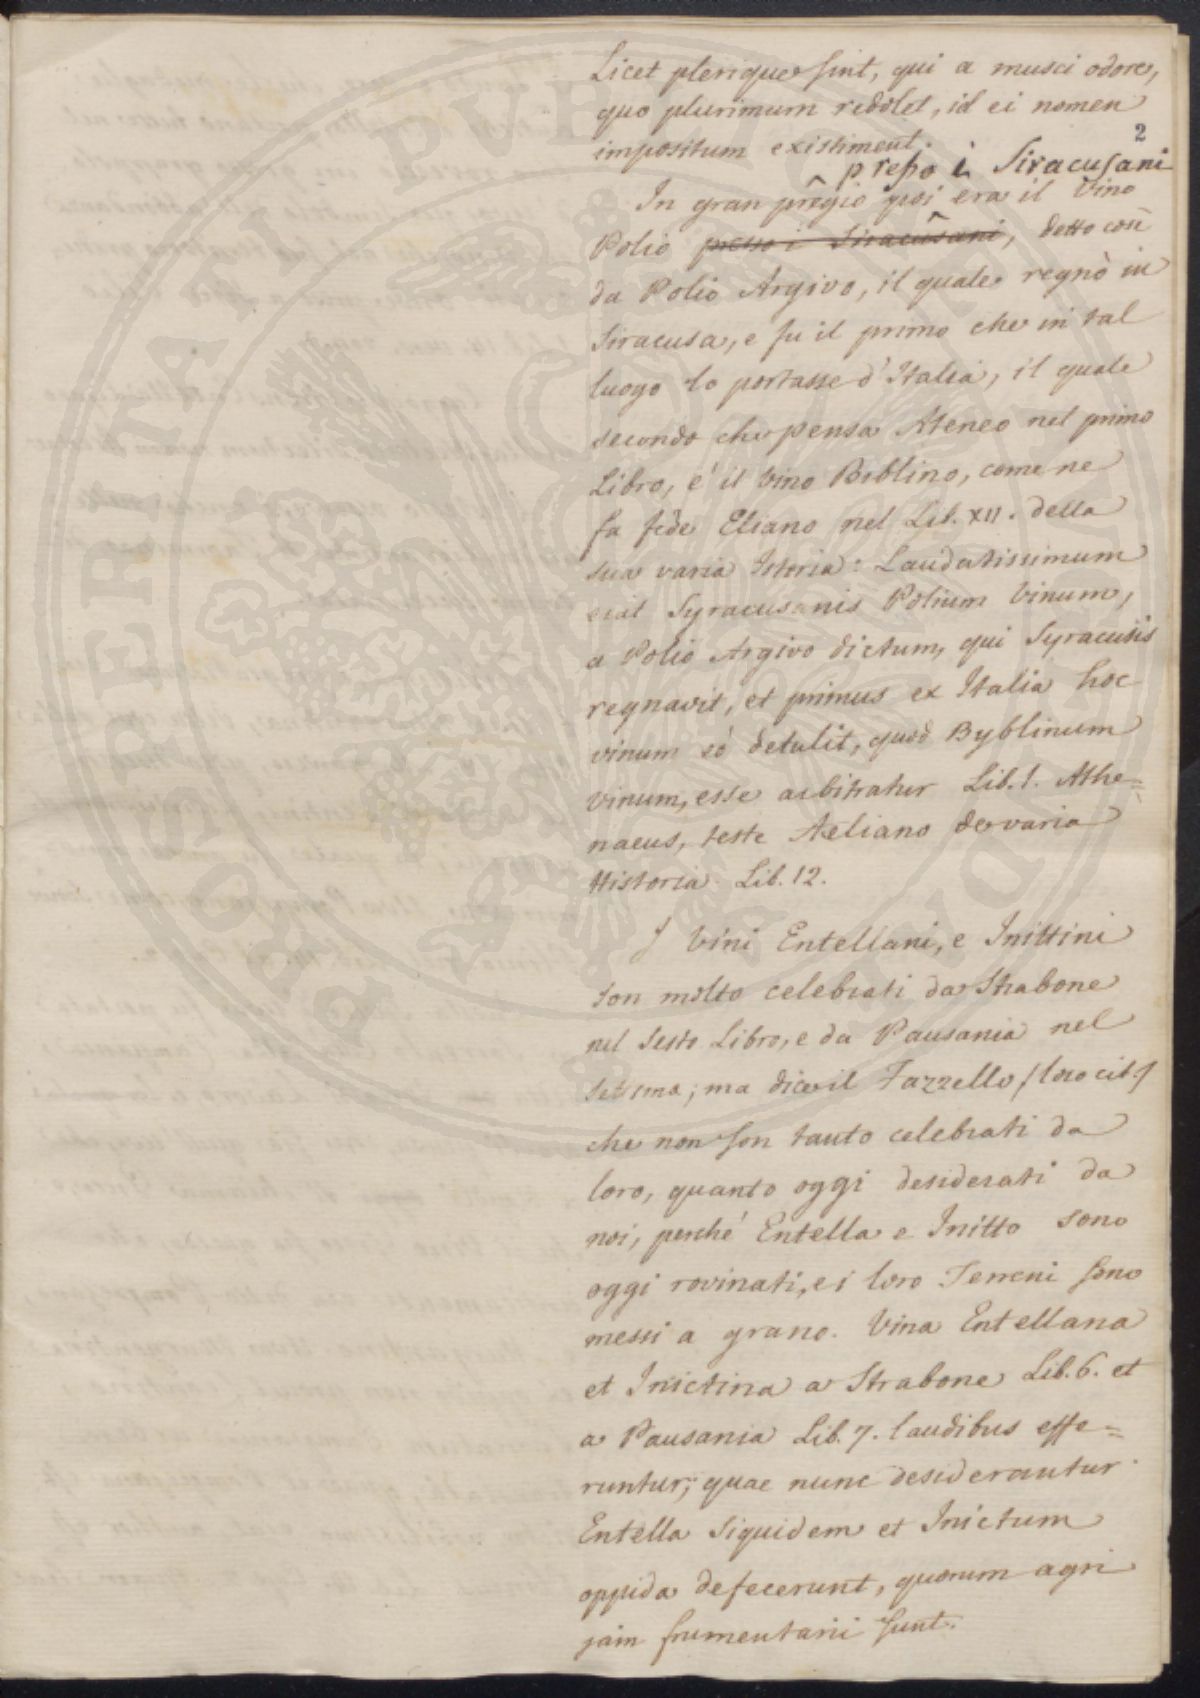 Licet plerique sint, qui a musci odore,
quo plurimum redolet, id ei nomen
impositum existiment.
2
presso i Siracusani
In gran pregio poi era il Vino
Polio presso i Siracusani, detto così
da Polio Argivo, il quale regnò in
Siracusa, e fu il primo che in tal
luogo lo portasse d'Italia, il quale
secondo che pensa Ateneo nel primo
Libro, e' il Vino Biblino, come ne
fa fede Eliano nel Lib. XII. della
sua varia Istoria: Laudatissimum
erat Syracusanis Polium Vinum,
a Polio Argivo dictum, qui Syracusis
regnavit, et primus ex Italia hoc
vinum eò detulit, quod Byblinum
vinum, esse arbitratur Lib. 1. Athe=
naeus, teste Aeliano de varia
Historia Lib. 12.
I Vini Entellani, e Inittini
son molto celebrati da Strabone
nel Sesto Libro, e da Pausania nel
Settimo; ma dice il Fazzello /loco cit./
che non son tanto celebrati da
loro, quanto oggi desiderati da
noi, perchè Entella e Initto sono
oggi rovinati, e i loro Terreni sono
messi a grano. Vina Entellana
et Inictina a Strabone Lib. 6. et
a Pausania Lib. 7. laudibus effe=
runtur; quae nunc desiderantur.
Entella siquidem et Inictum
oppida defecerunt, quorum agri
jam frumentarii sunt.
PROSPERITATI PVBLICAE